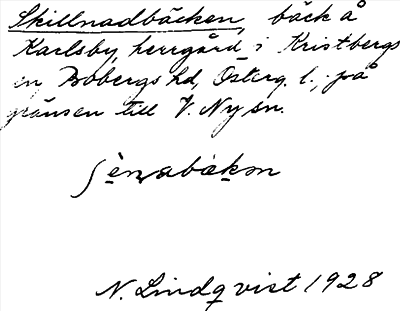 Skillnadbäcken, bäck å
Karlsby, herrgård i Kristbergs
sn Bobergs hd, Österg. l., på
gränsen till V. Ny sn.
N. Lindqvist 1928